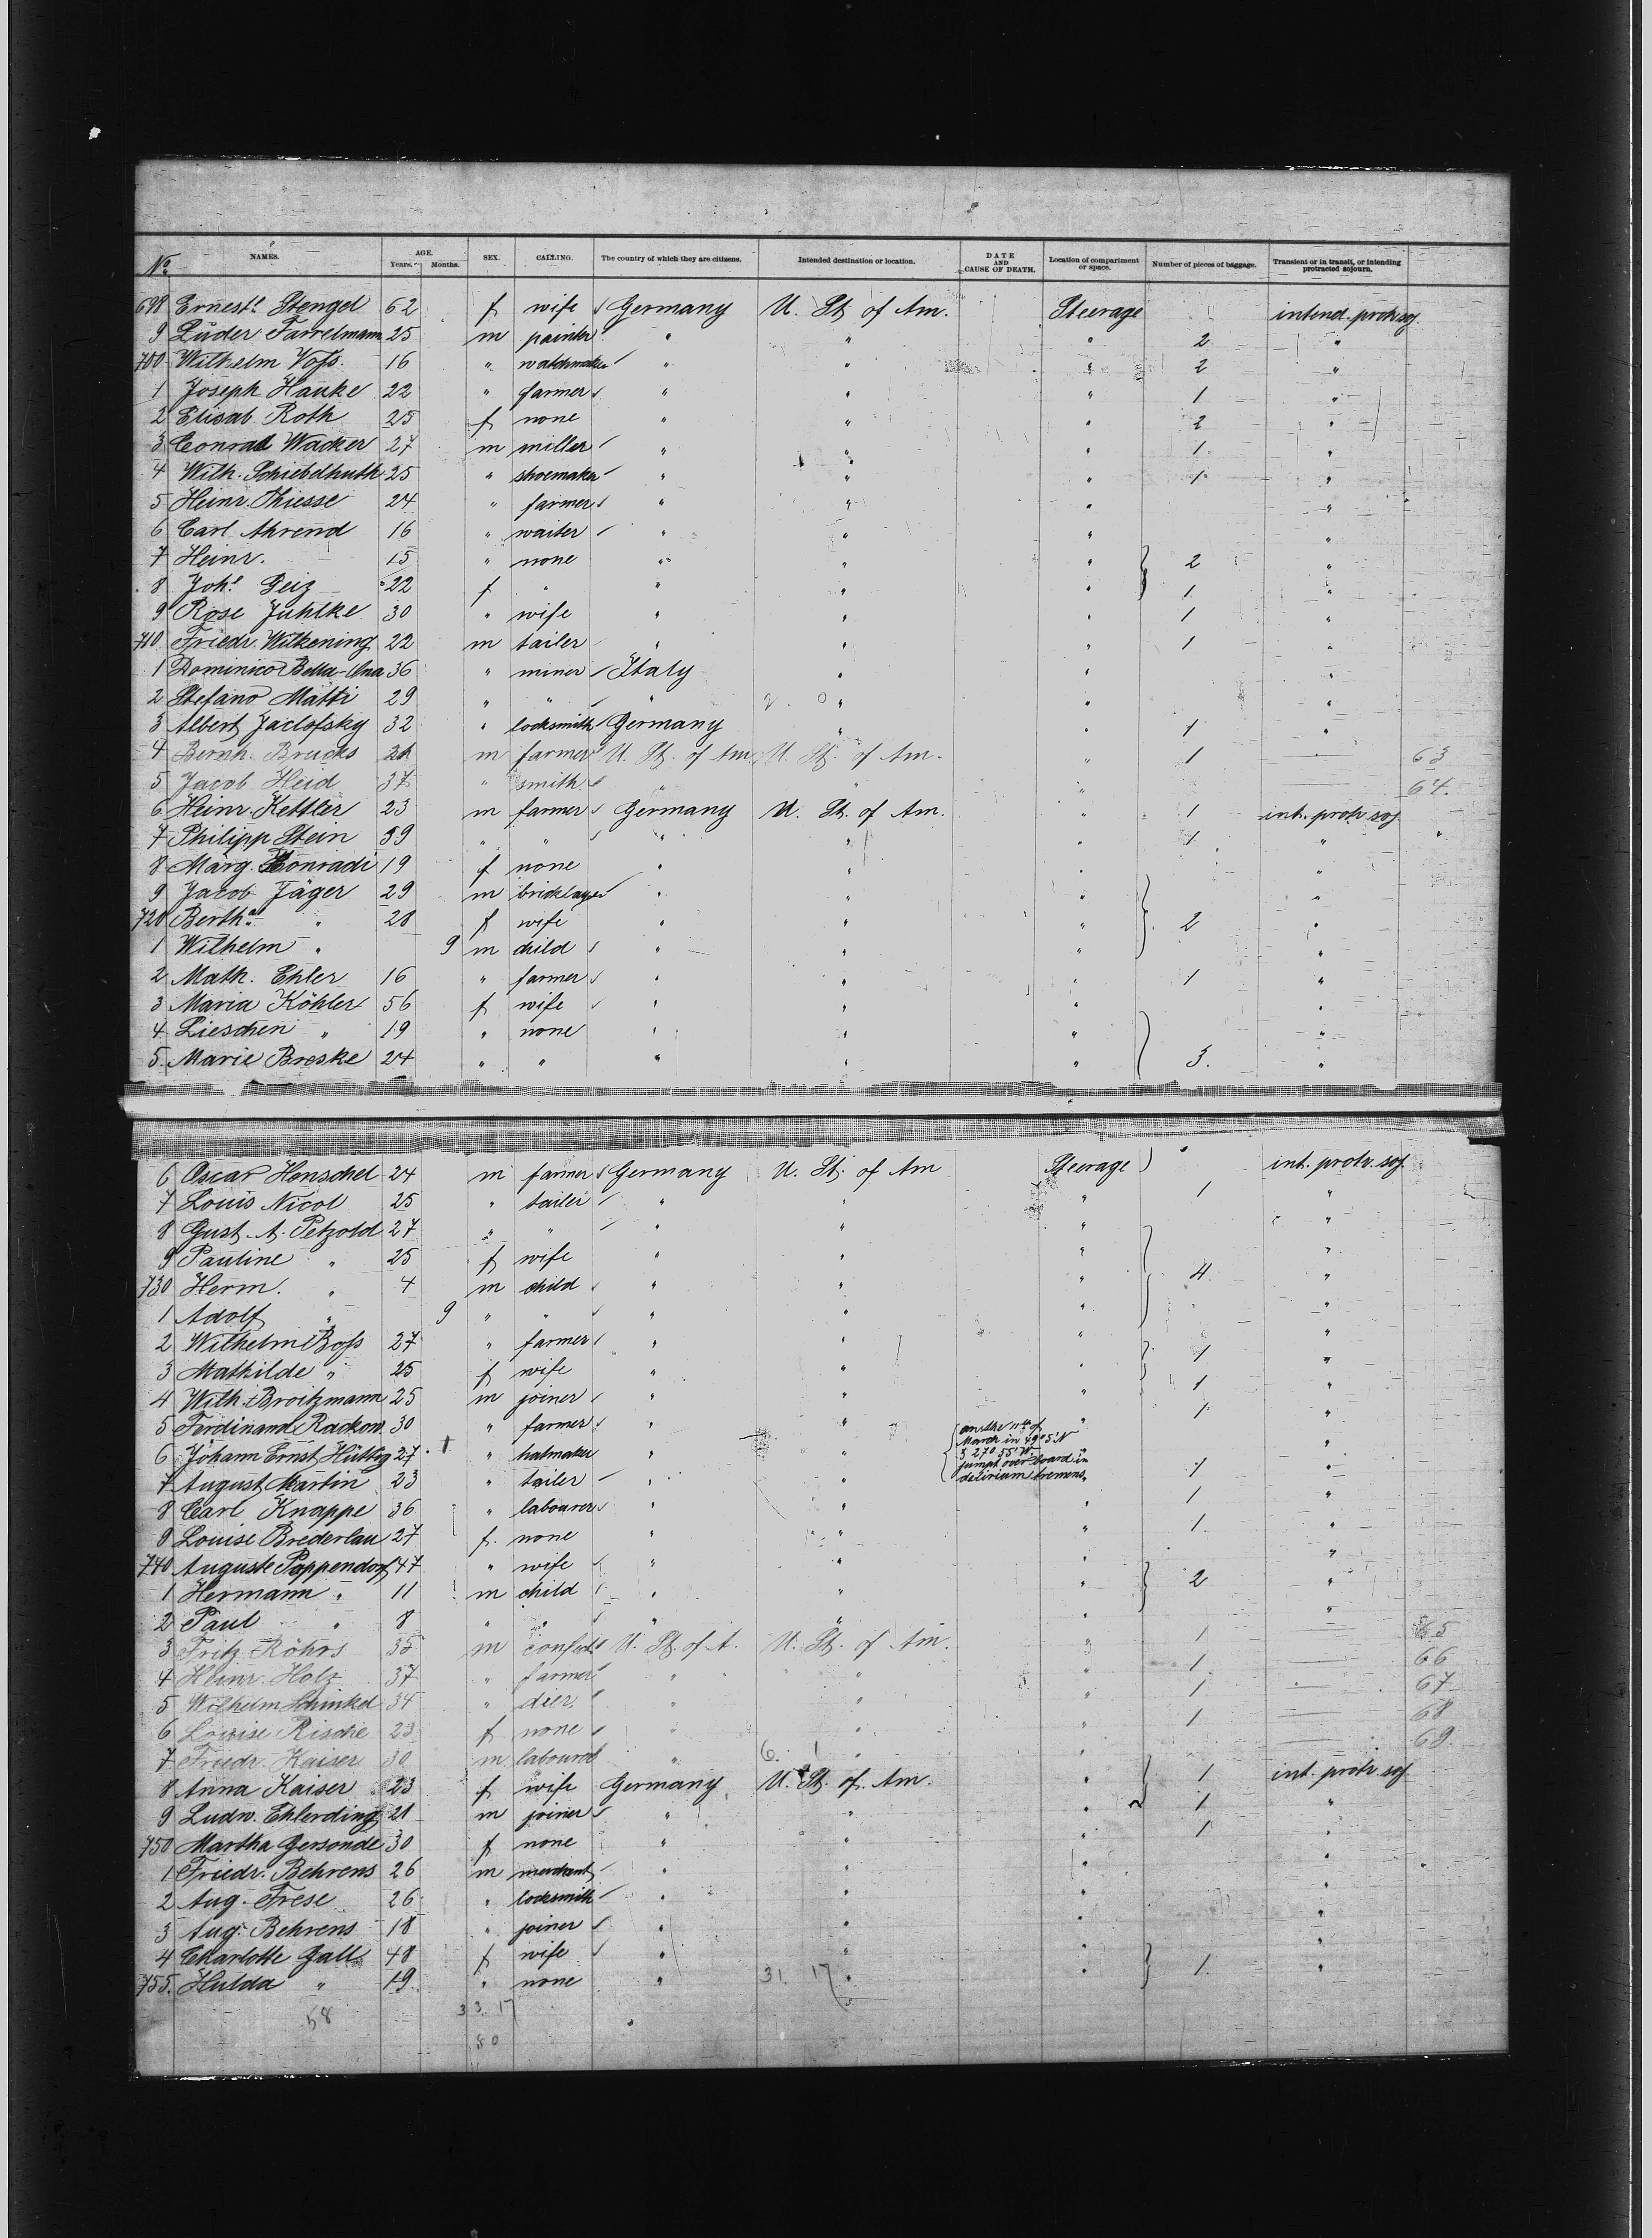 No. NAMES. AGE. Years. Months. SEX. CALLING. The country of which they are citizens. Intended destination or location. DATE AND CAUSE OF DEATH. Location of compartment or space. Number of pieces of baggage. Transient or in transit, or intending protracted sojourn.
698 Ernest.e Stengel 62 f wife Germany U. St. of Am. Steerage intend. protr. soj.
9 Lüder Farrelmann 25 m painter " " " 2 "
700 Wilhelm Voss 16 " watchmaker " " " 2 "
1 Joseph Hauke 22 " farmer " " " 1 "
2 Elisab. Roth 25 f none " " " 2 "
3 Conrad Wacker 27 m miller " " " 1 "
4 Wilh. Schiebdhuth 25 " shoemaker " " " 1 "
5 Heinr. Thiesse 24 " farmer " " " "
6 Carl Ahrend 16 " waiter " " " "
7 Heinr. 15 " none " " " 2 "
8 Joh.e Peiz 22 f " " " " 1 "
9 Rose Juhlke 30 " wife " " " 1 "
710 Friedr. Wilkening 22 m tailer " " " 1 "
1 Dominico Bella-Ana 36 " miner Italy " " "
2 Stefano Matti 29 " " " " " "
3 Albert Jaclofsky 32 " locksmith Germany " " 1 "
4 Bernh. Brucks m farmer U. St. of Am. U. St. of Am. " 1 — 63
5 Jacob Heid 37 " smith " " " — 64.
6 Heinr. Kettler 23 m farmer Germany U. St. of Am. " 1 int. protr. soj
7 Philipp Stein 39 " " " " " 1 "
8 Marg. Conradi 19 f none " " " "
9 Jacob Jäger 29 m bricklayer " " " "
720 Berth.a " 28 f wife " " " 2 "
1 Wilhelm " 9 m child " " " "
2 Math. Ehler 16 " farmer " " " 1 "
3 Maria Köhler 56 f wife " " " "
4 Lieschen " 19 " none " " " "
5. Marie Breske 24 " " " " " 3. "
6 Oscar Henschel 24 m farmer Germany U. St. of Am Steerage int. protr. soj.
7 Louis Nicol 25 " tailer " " " 1 "
8 Gust. A. Petzold 27 " " " " " "
9 Pauline " 25 f wife " " " "
730 Herm. " 4 m child " " " 4 "
1 Adolf " 9 " " " " " "
2 Wilhelm Boss 27 " farmer " " " "
3 Mathilde " 25 f wife " " " 1 "
4 Wilh. Broitzmann 25 m joiner " " " 1 "
5 Ferdinand Rackow 30 " farmer " " " 1 "
6 Johann Ernst Hüttig 27 " hatmaker " " on the 11th of March in 49°5' N & 27° 55' W jumpt over board in delirium tremens. " "
7 August Martin 23 " tailer " " 1 "
8 Carl Knappe 36 " labourer " " " 1 "
9 Louise Brederlau 27 f. none " " " 1 "
740 Auguste Pappendorf 47 " wife " " " "
1 Hermann " 11 m child " " " 2 "
2 Paul " 8 " " " " " "
3 Fritz Röhrs 35 m confect. U. St. of A. U. St. of Am. " 1 — 65
4 Heinr. Holz 37 " farmer " " " 1 — 66
5 Wilhelm Schinkel 34 " dier " " " 1 — 67
6 Louise Rische 23 f none " " " 1 — 68
7 Friedr. Kaiser 30 m labourer " " " — 69.
8 Anna Kaiser 23 f wife Germany U. St. of Am. " 1 int. protr. soj
9 Ludw. Ehlerding 21 m joiner " " " 1 "
750 Martha Gersonde 30 f none " " " 1 "
1 Friedr. Behrens 26 m merchant " " " "
2 Aug. Frese 26 " locksmith " " " "
3 Aug. Behrens 18 " joiner " " " "
4 Charlotte Gall 48 f wife " " " "
755. Hulda " 19 " none " 31. 17 " " 1 "
58 33. 17
50